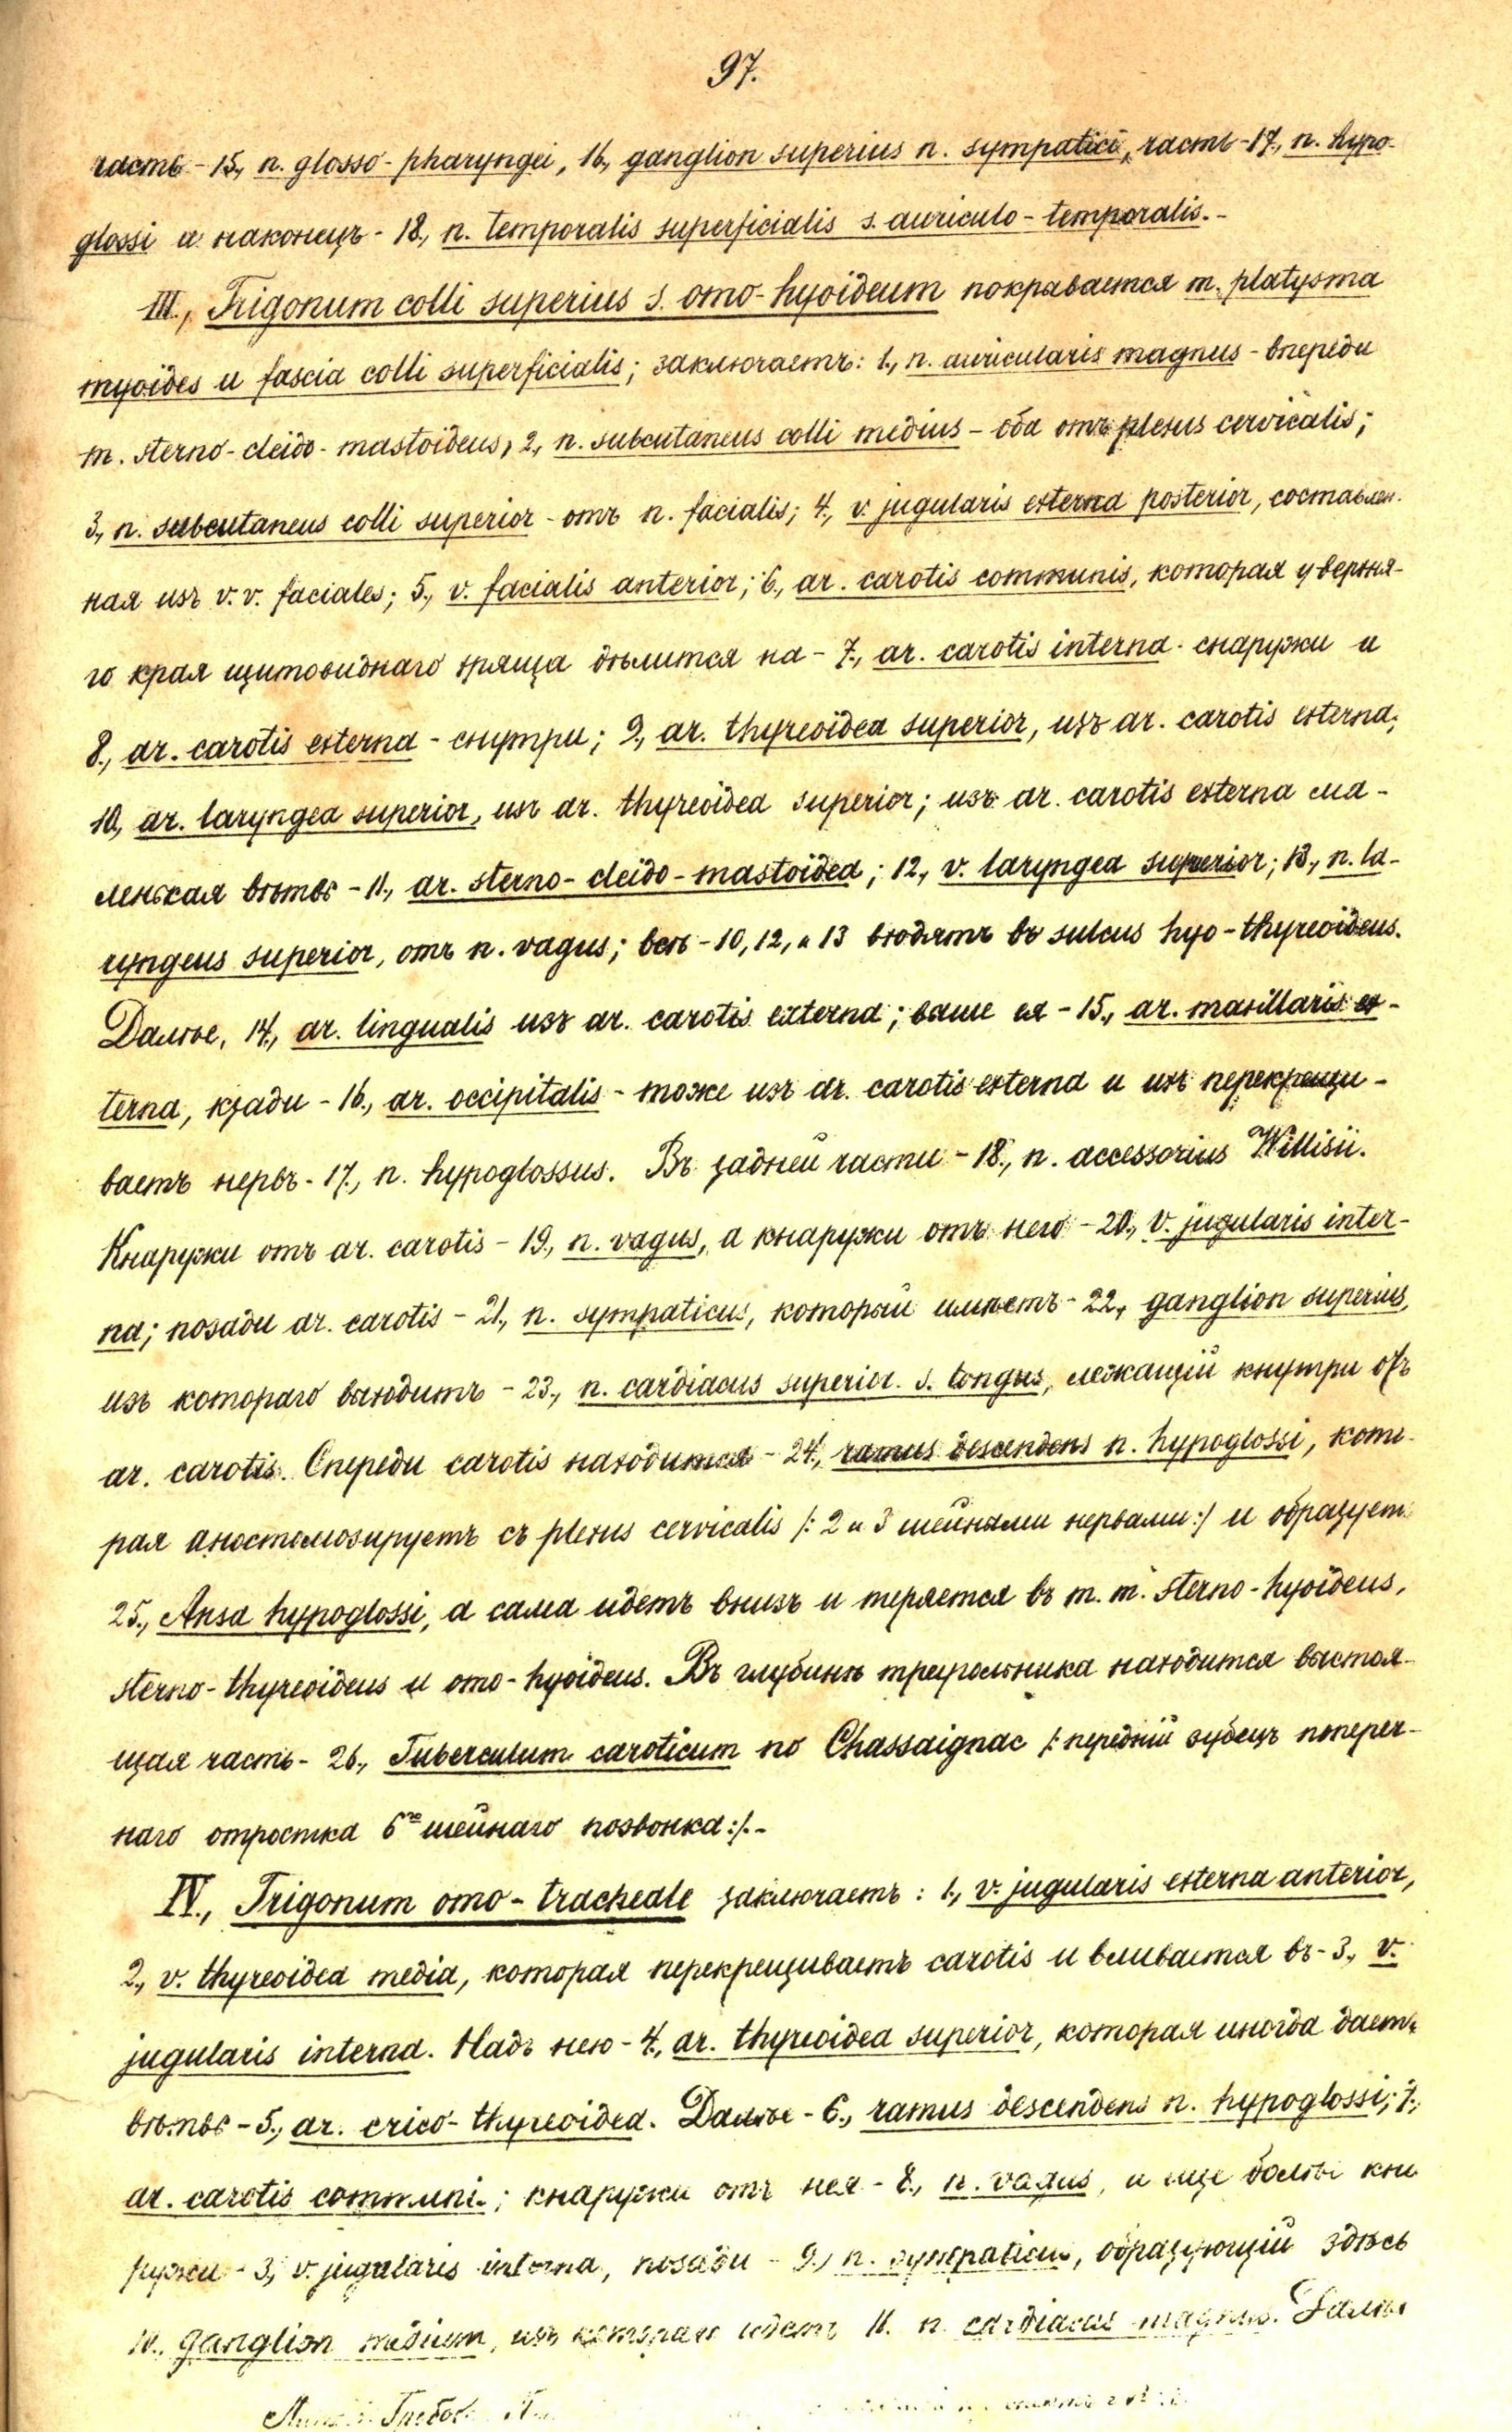 97.
часть - 15., n. glosso - pharyngei, 16., ganglion superius n. sympatici, часть - 17., n. hypo-
glossi и наконецъ - 18., n. temporalis superficialis s. auriculo - temporalis. -
III., Trigonum colli superius s. omo - hyoideum покрывается m. platysma
myoides и fascia colli superficialis; заключаетъ: 1., n. auricularis magnus - впереди
m. sterno - cleido - mastoideus, 2., n. subcutaneus colli medius - оба отъ plexus cervicalis;
3., n. subcutaneus colli superior - отъ n. facialis; 4., v. jugularis externa posterior, составлен-
ная изъ v. v. faciales; 5., v. facialis anterior; 6., ar. carotis communis, которая у верхня-
го края щитовиднаго хряща дѣлится на - 7., ar. carotis interna - снаружи и
8., ar. carotis externa - снутри; 9., ar. thyreoidea superior, изъ ar. carotis externa;
10., ar. laryngea superior, изъ ar. thyreoidea superior; изъ ar. carotis externa ма-
ленькая вѣтвь - 11., ar. sterno - cleido - mastoidea; 12., v. laryngea superior; 13., n. la-
ryngeus superior, отъ n. vagus; всѣ - 10, 12, и 13 входятъ въ sulcus hyo - thyreoideus.
Далѣе, 14., ar. lingualis изъ ar. carotis externa; выше ея - 15., ar. maxillaris ex-
terna, кзади - 16., ar. occipitalis - тоже изъ ar. carotis externa и ихъ перекрещи-
ваетъ нервъ - 17., n. hypoglossus. Въ задней части - 18., n. accessorius Willisii.
Кнаружи отъ ar. carotis - 19., n. vagus, а кнаружи отъ него - 20., v. jugularis inter-
na; позади ar. carotis - 21., n. sympaticus, который имѣетъ - 22., ganglion superius,
изъ котораго выходитъ - 23., n. cardiacus superior s. longus, лежащій кнутри отъ
ar. carotis. Спереди carotis находится - 24., ramus descendens n. hypoglossi, кото-
рая аностомозируетъ съ plexus cervicalis /: 2 и 3 шейными нервами :/ и образуетъ
25., Ansa hypoglossi, а сама идетъ внизъ и теряется въ m. m. sterno - hyoideus,
sterno - thyreoideus и omo - hyoideus. Въ глубинѣ треугольника находится выстоя-
щая часть - 26., Tuberculum caroticum по Chassaignac /: передній зубецъ попереч-
наго отростка 6го шейнаго позвонка :/. -
IV., Trigonum omo - tracheale заключаетъ: 1., v. jugularis externa anterior,
2., v. thyreoidea media, которая перекрещиваетъ carotis и вливается въ - 3., v.
jugularis interna. Надъ нею - 4., ar. thyreoidea superior, которая иногда даетъ
вѣтвь - 5., ar. crico - thyreoidea. Далѣе - 6., ramus descendens n. hypoglossi; 7.,
ar. carotis communi.; кнаружи отъ нея - 8., n. vagus, и еще болѣе кна
ружи - 3, v. jugularis interna, позади - 9., n. sympaticus, образующій здѣсь
10., ganglion medium, изъ котораго идетъ 11. n. cardiacus magnus. Далѣе